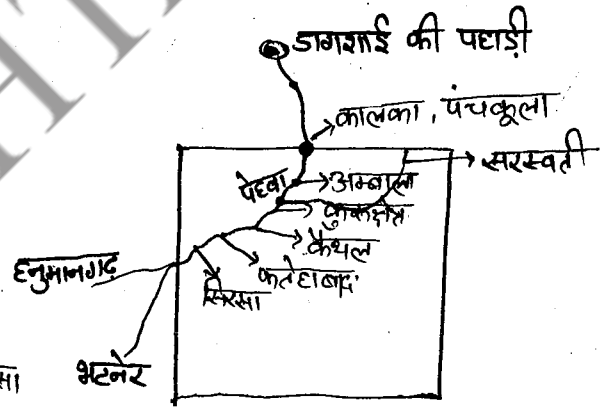 डागशाई की पहाड़ी
कालका, पंचकूला
सरस्वती
पेहवा
अम्बाला
कुरुक्षेत्र
कैथल
हनुमानगढ़
फतेहाबाद
सिरसा
भटनेर